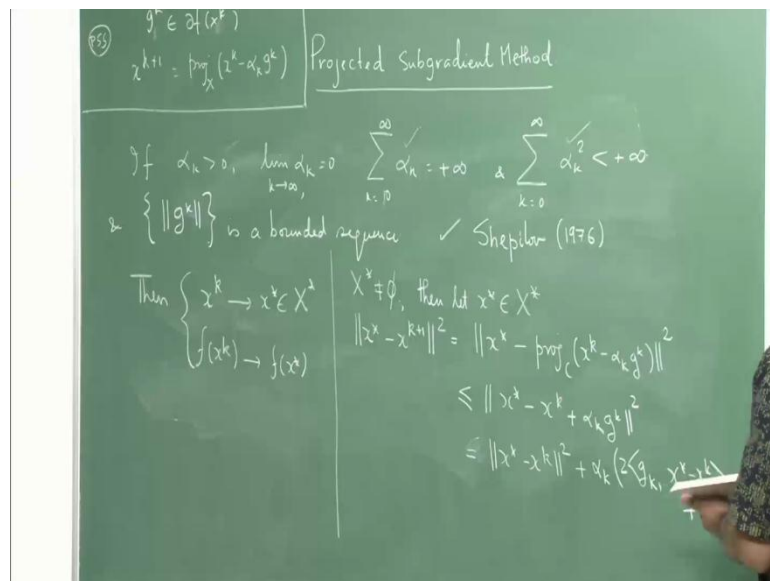 PSS
g^k ∈ ∂f(x^k)
x^{k+1} = proj_X (x^k - α_k g^k)
Projected Subgradient Method
If α_k > 0, lim_{k→∞} α_k = 0, ∑_{k=0}^∞ α_k = +∞ & ∑_{k=0}^∞ α_k^2 < +∞
& {||g^k||} is a bounded sequence ✓ Shepilov (1976)
Then { x^k → x* ∈ X*
f(x^k) → f(x*)
X* ≠ ∅, then let x* ∈ X*
||x* - x^{k+1}||^2 = ||x* - proj_C (x^k - α_k g^k)||^2
≤ ||x* - x^k + α_k g^k||^2
= ||x* - x^k||^2 + α_k (2⟨g_k, x* - x^k⟩
+